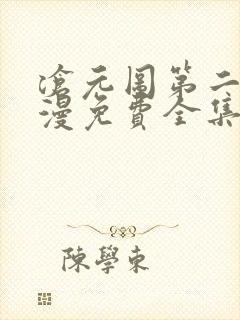 滄元圖第二
漫免費全集
陳學東